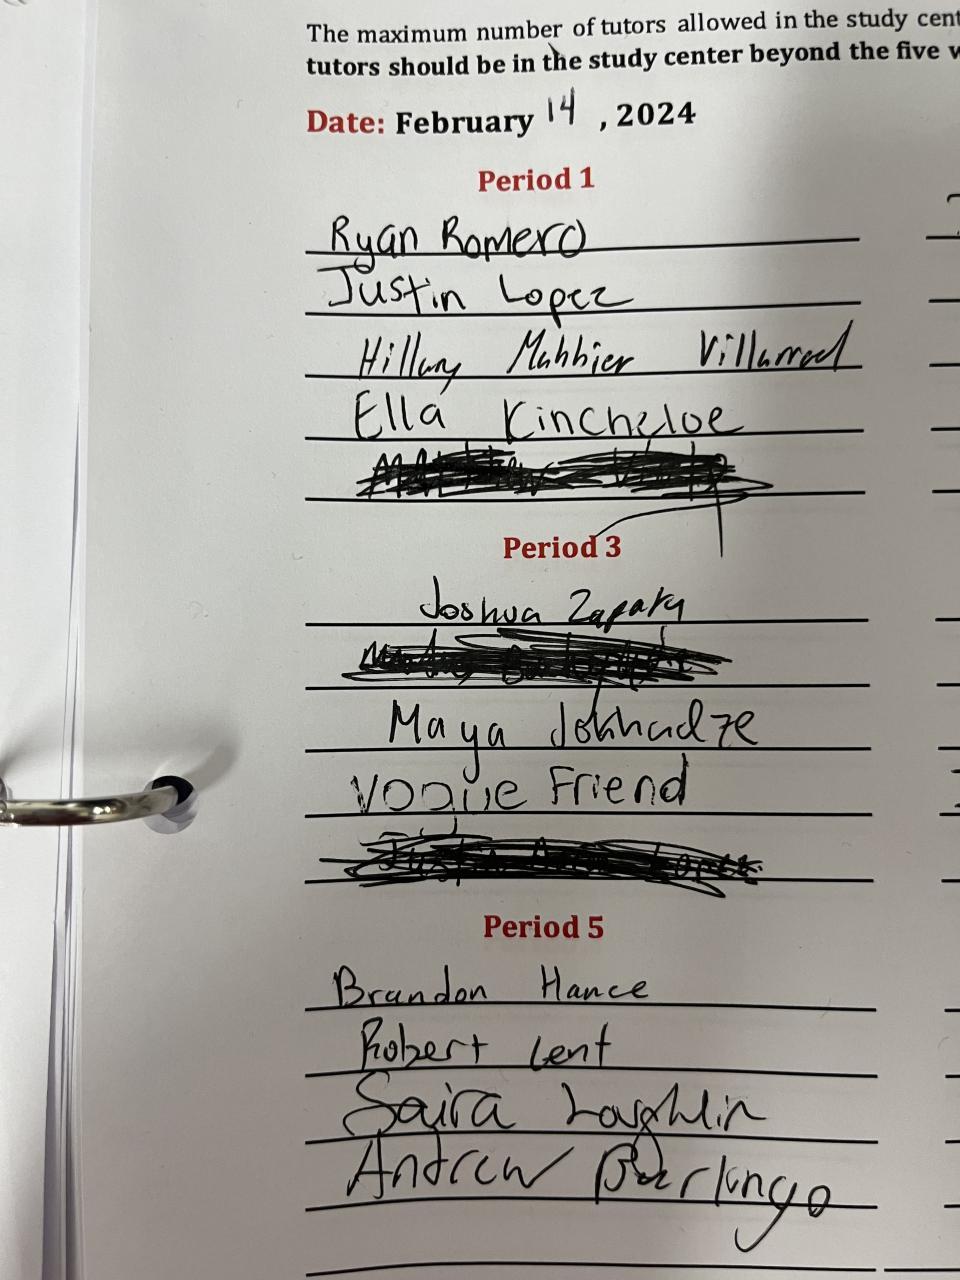 The maximum number of tutors allowed in the study cent
tutors should be in the study center beyond the five w
Date: February 14, 2024
Period 1
Ryan Romero
Justin Lopez
Hillary
Ella Kincheloe
Period 3
Joshua Zapata
Maya Jokhadze
Vogue Friend
Period 5
Brandon Hance
Robert Lent
Saira Loughlin
Andrew